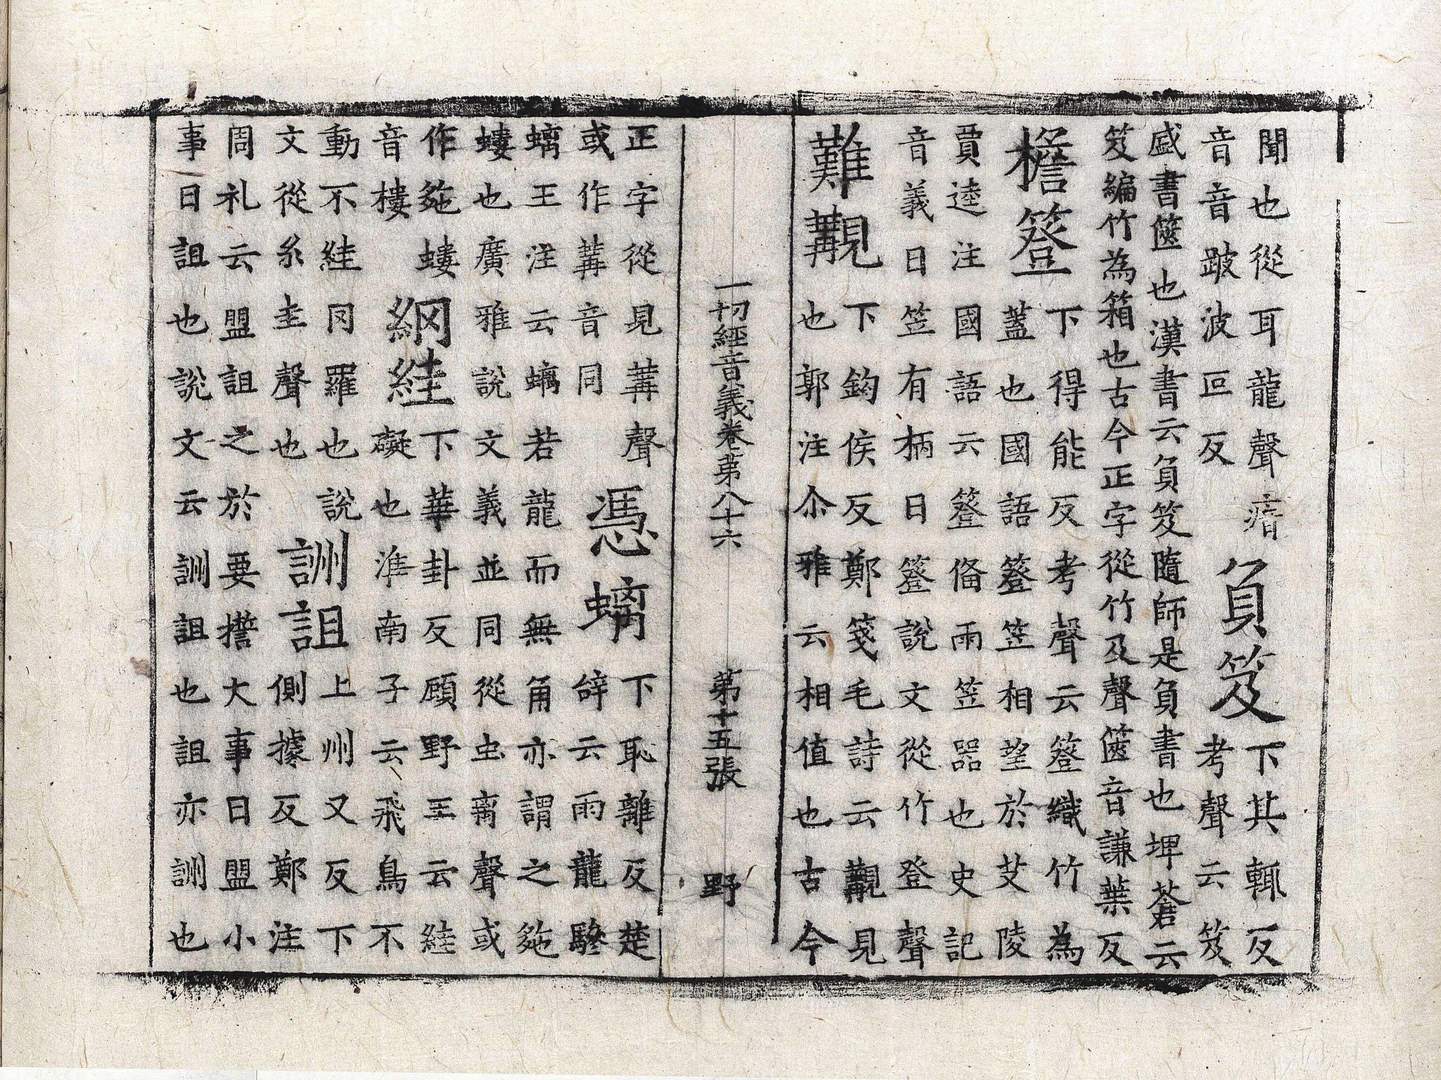 聞也從耳龍聲瘖
音音跛波叵反
負笈
下其輒反
考聲云笈
盛書篋也漢書云負笈隨師是負書也埤蒼云
笈編竹為箱也古今正字從竹及聲篋音謙葉反
檐簦
下得能反考聲云簦織竹為
蓋也國語簦笠相望於艾陵
賈逵注國語云簦俻雨笠器也史記
音義曰笠有柄曰簦說文從竹登聲
難覯
下鈎侯反鄭箋毛詩云覯見
也郭注尒雅云相值也古今
一切經音義卷第八十六 第十五張 野
正字從見冓聲
或作冓音同
憑螭
下恥離反楚
辝云雨龍驂
螭王注云螭若龍而無角亦謂之虵
螻也廣雅說文義並同從虫离聲或
作虵螻
音樓
網絓
下華卦反顧野王云絓
礙也淮南子云飛鳥不
動不絓罔羅也說
文從糸圭聲也
詶詛
上州又反下
側據反鄭注
周礼云盟詛之於要誓大事曰盟小
事曰詛也說文云詶詛也詛亦詶也